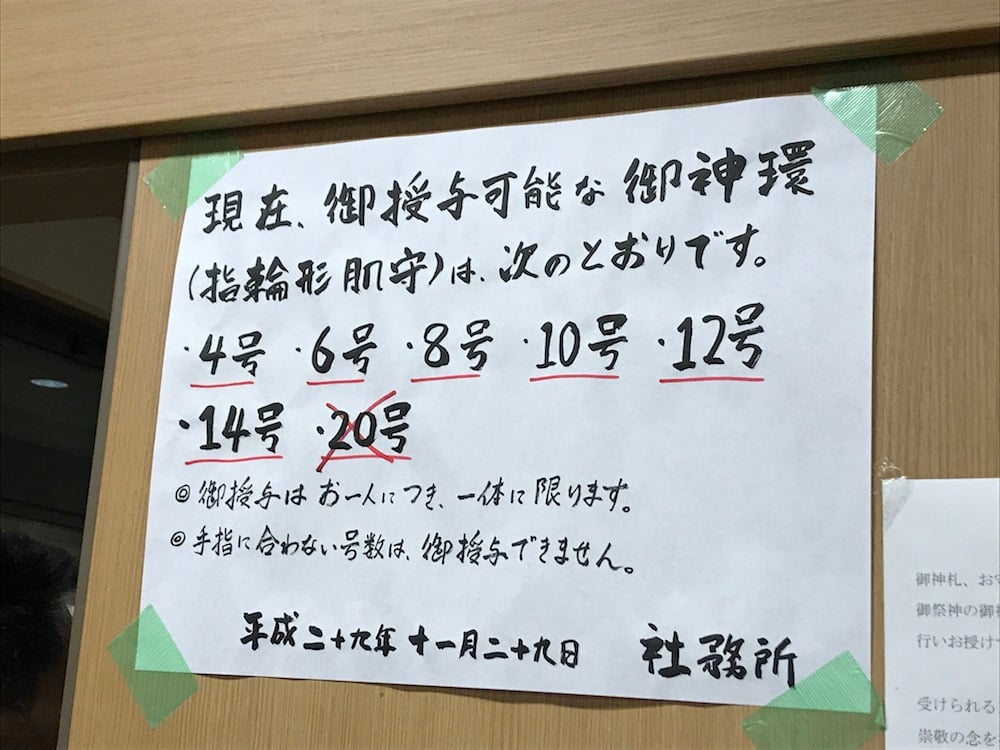 現在、御授与可能な御神環
(指輪形肌守)は、次のとおりです。
・4号 ・6号 ・8号 ・10号 ・12号
・14号 ・20号
◎御授与はお一人につき、一体に限ります。
◎手指に合わない号数は、御授与できません。
平成二十九年十一月二十九日 社務所
御神札、お守
御祭神の御神
行いお授け
受けられる
崇敬の念を